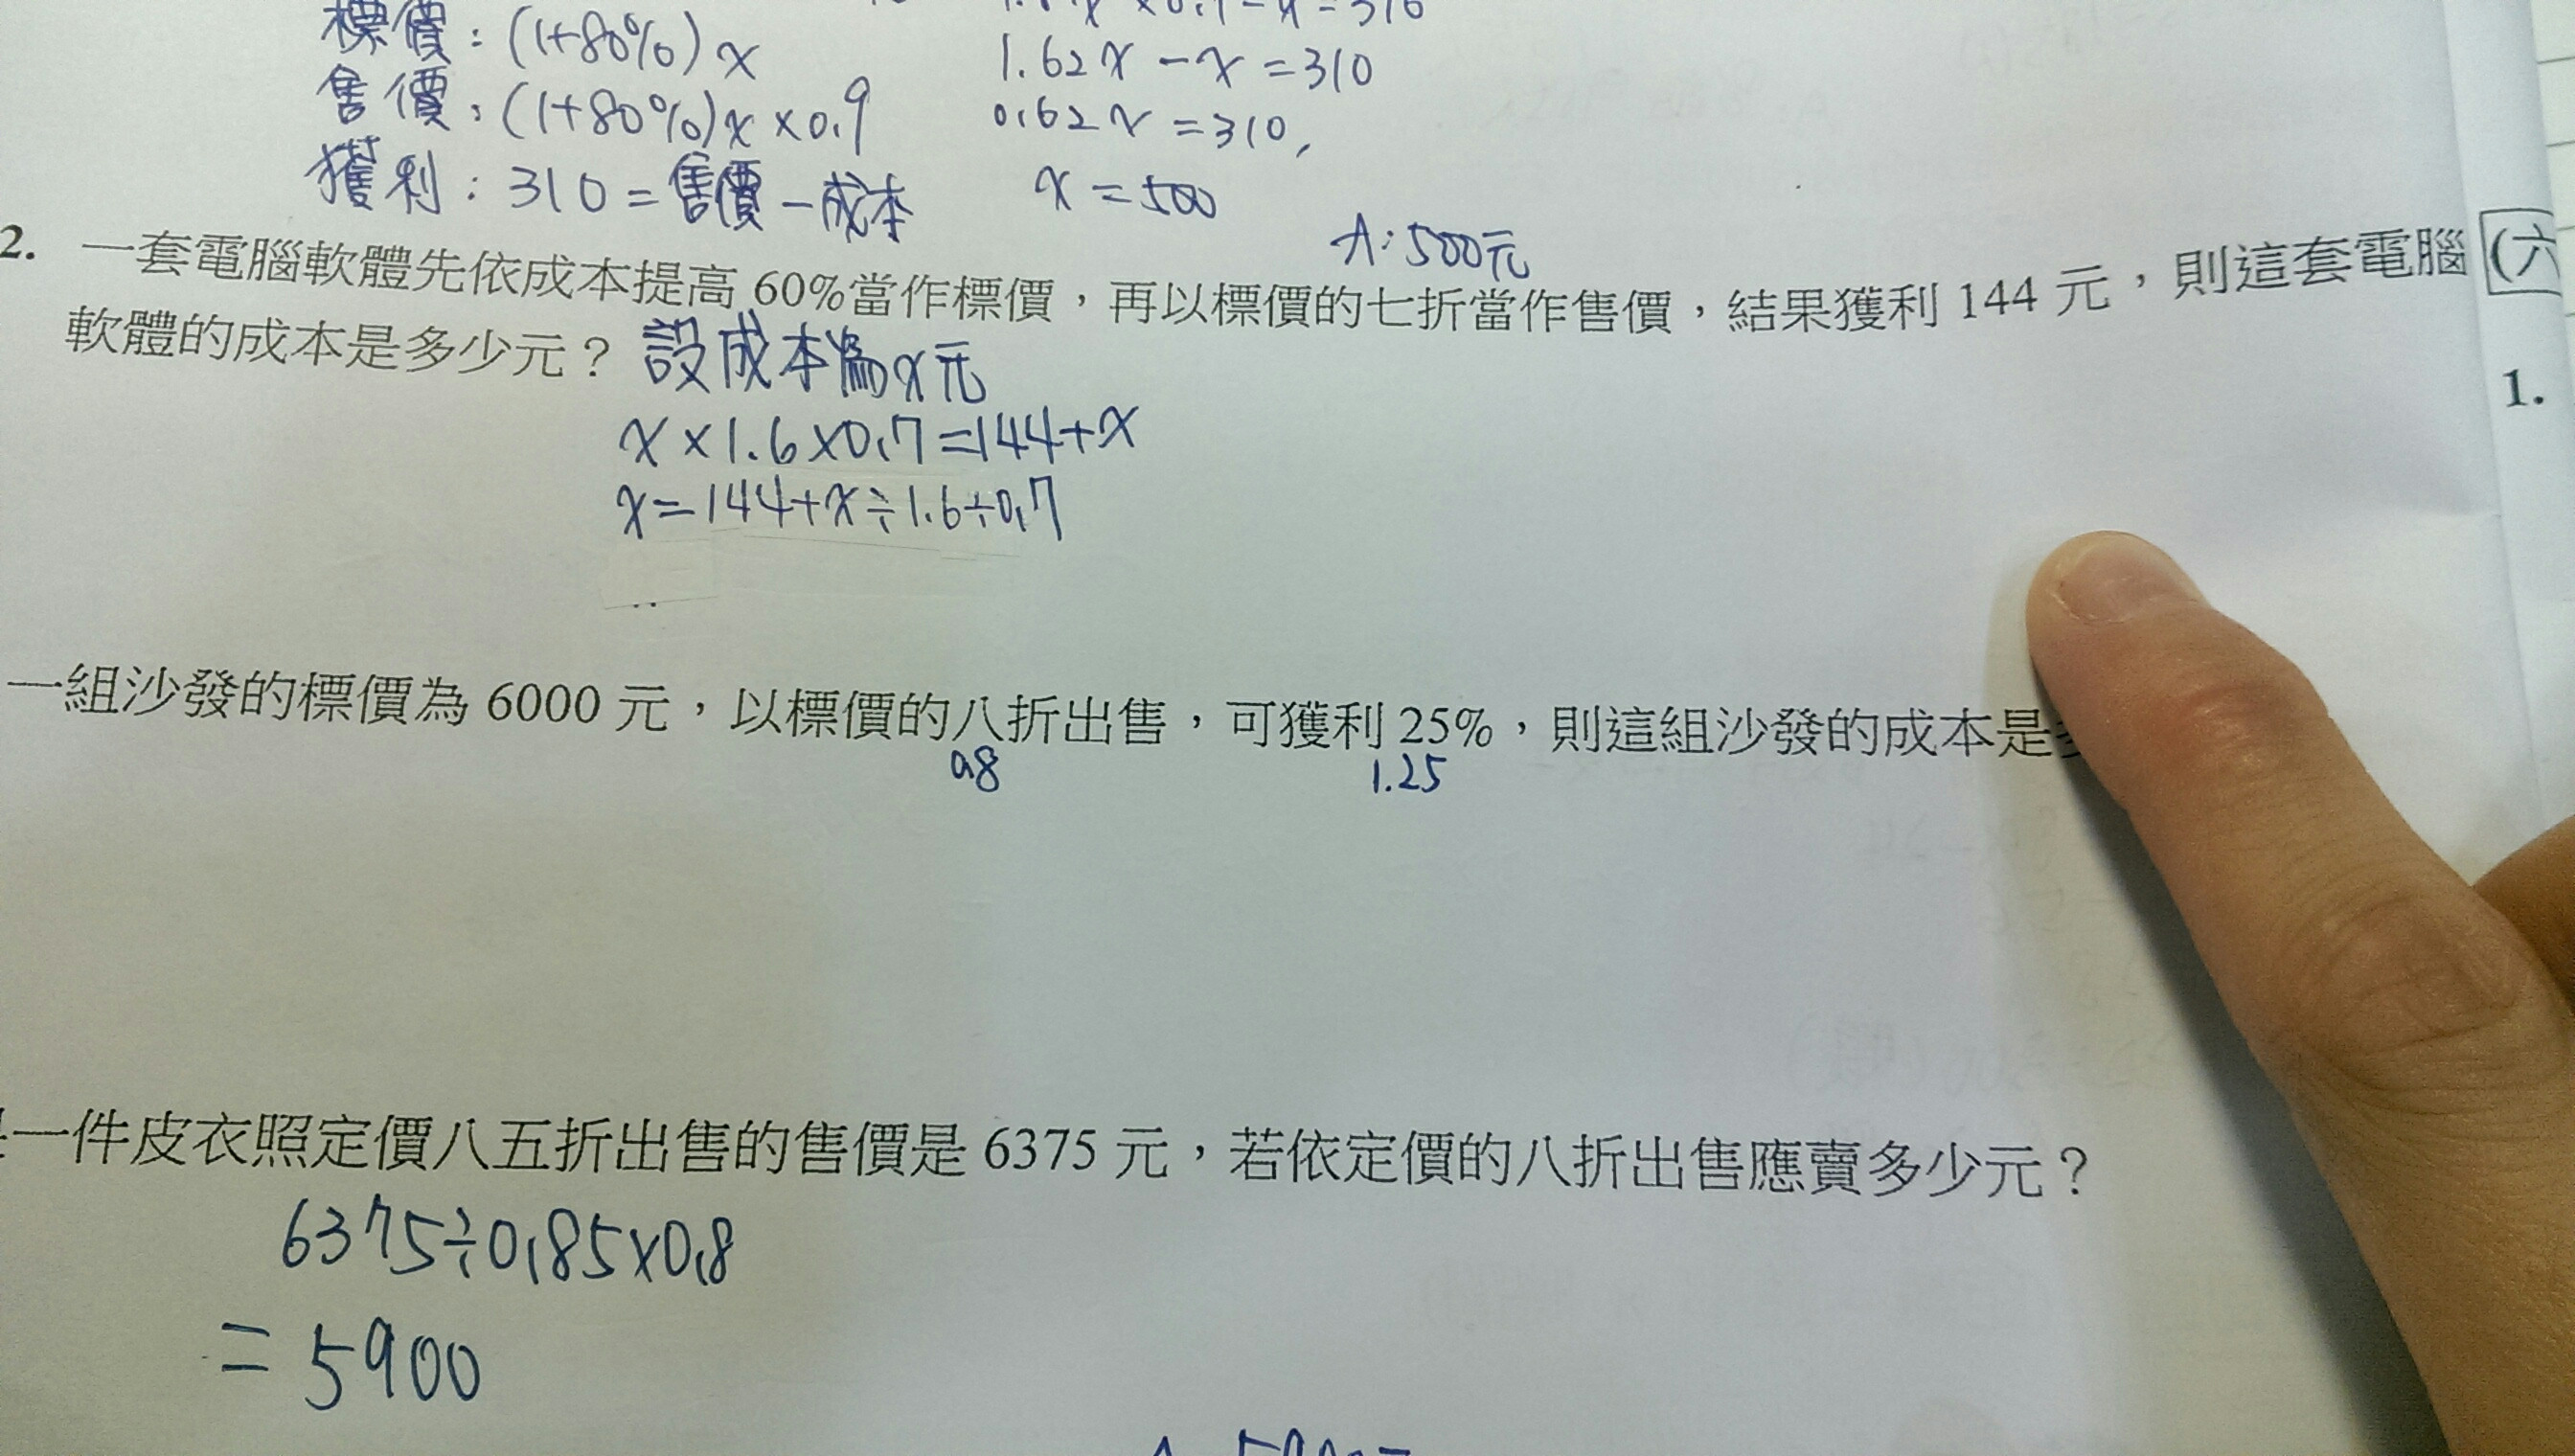 標價：(1+80%)x
售價：(1+80%)x×0.9
獲利：310=售價-成本
1.62x-x=310
0.62x=310,
x=500
A:500元
2. 一套電腦軟體先依成本提高 60%當作標價，再以標價的七折當作售價，結果獲利 144 元，則這套電腦
軟體的成本是多少元？
設成本為x元
x×1.6×0.7=144+x
x=144+x÷1.6÷0.7
(六
1.
一組沙發的標價為 6000 元，以標價的八折出售，可獲利 25%，則這組沙發的成本是
0.8
1.25
一件皮衣照定價八五折出售的售價是 6375 元，若依定價的八折出售應賣多少元？
6375÷0.85×0.8
=5900